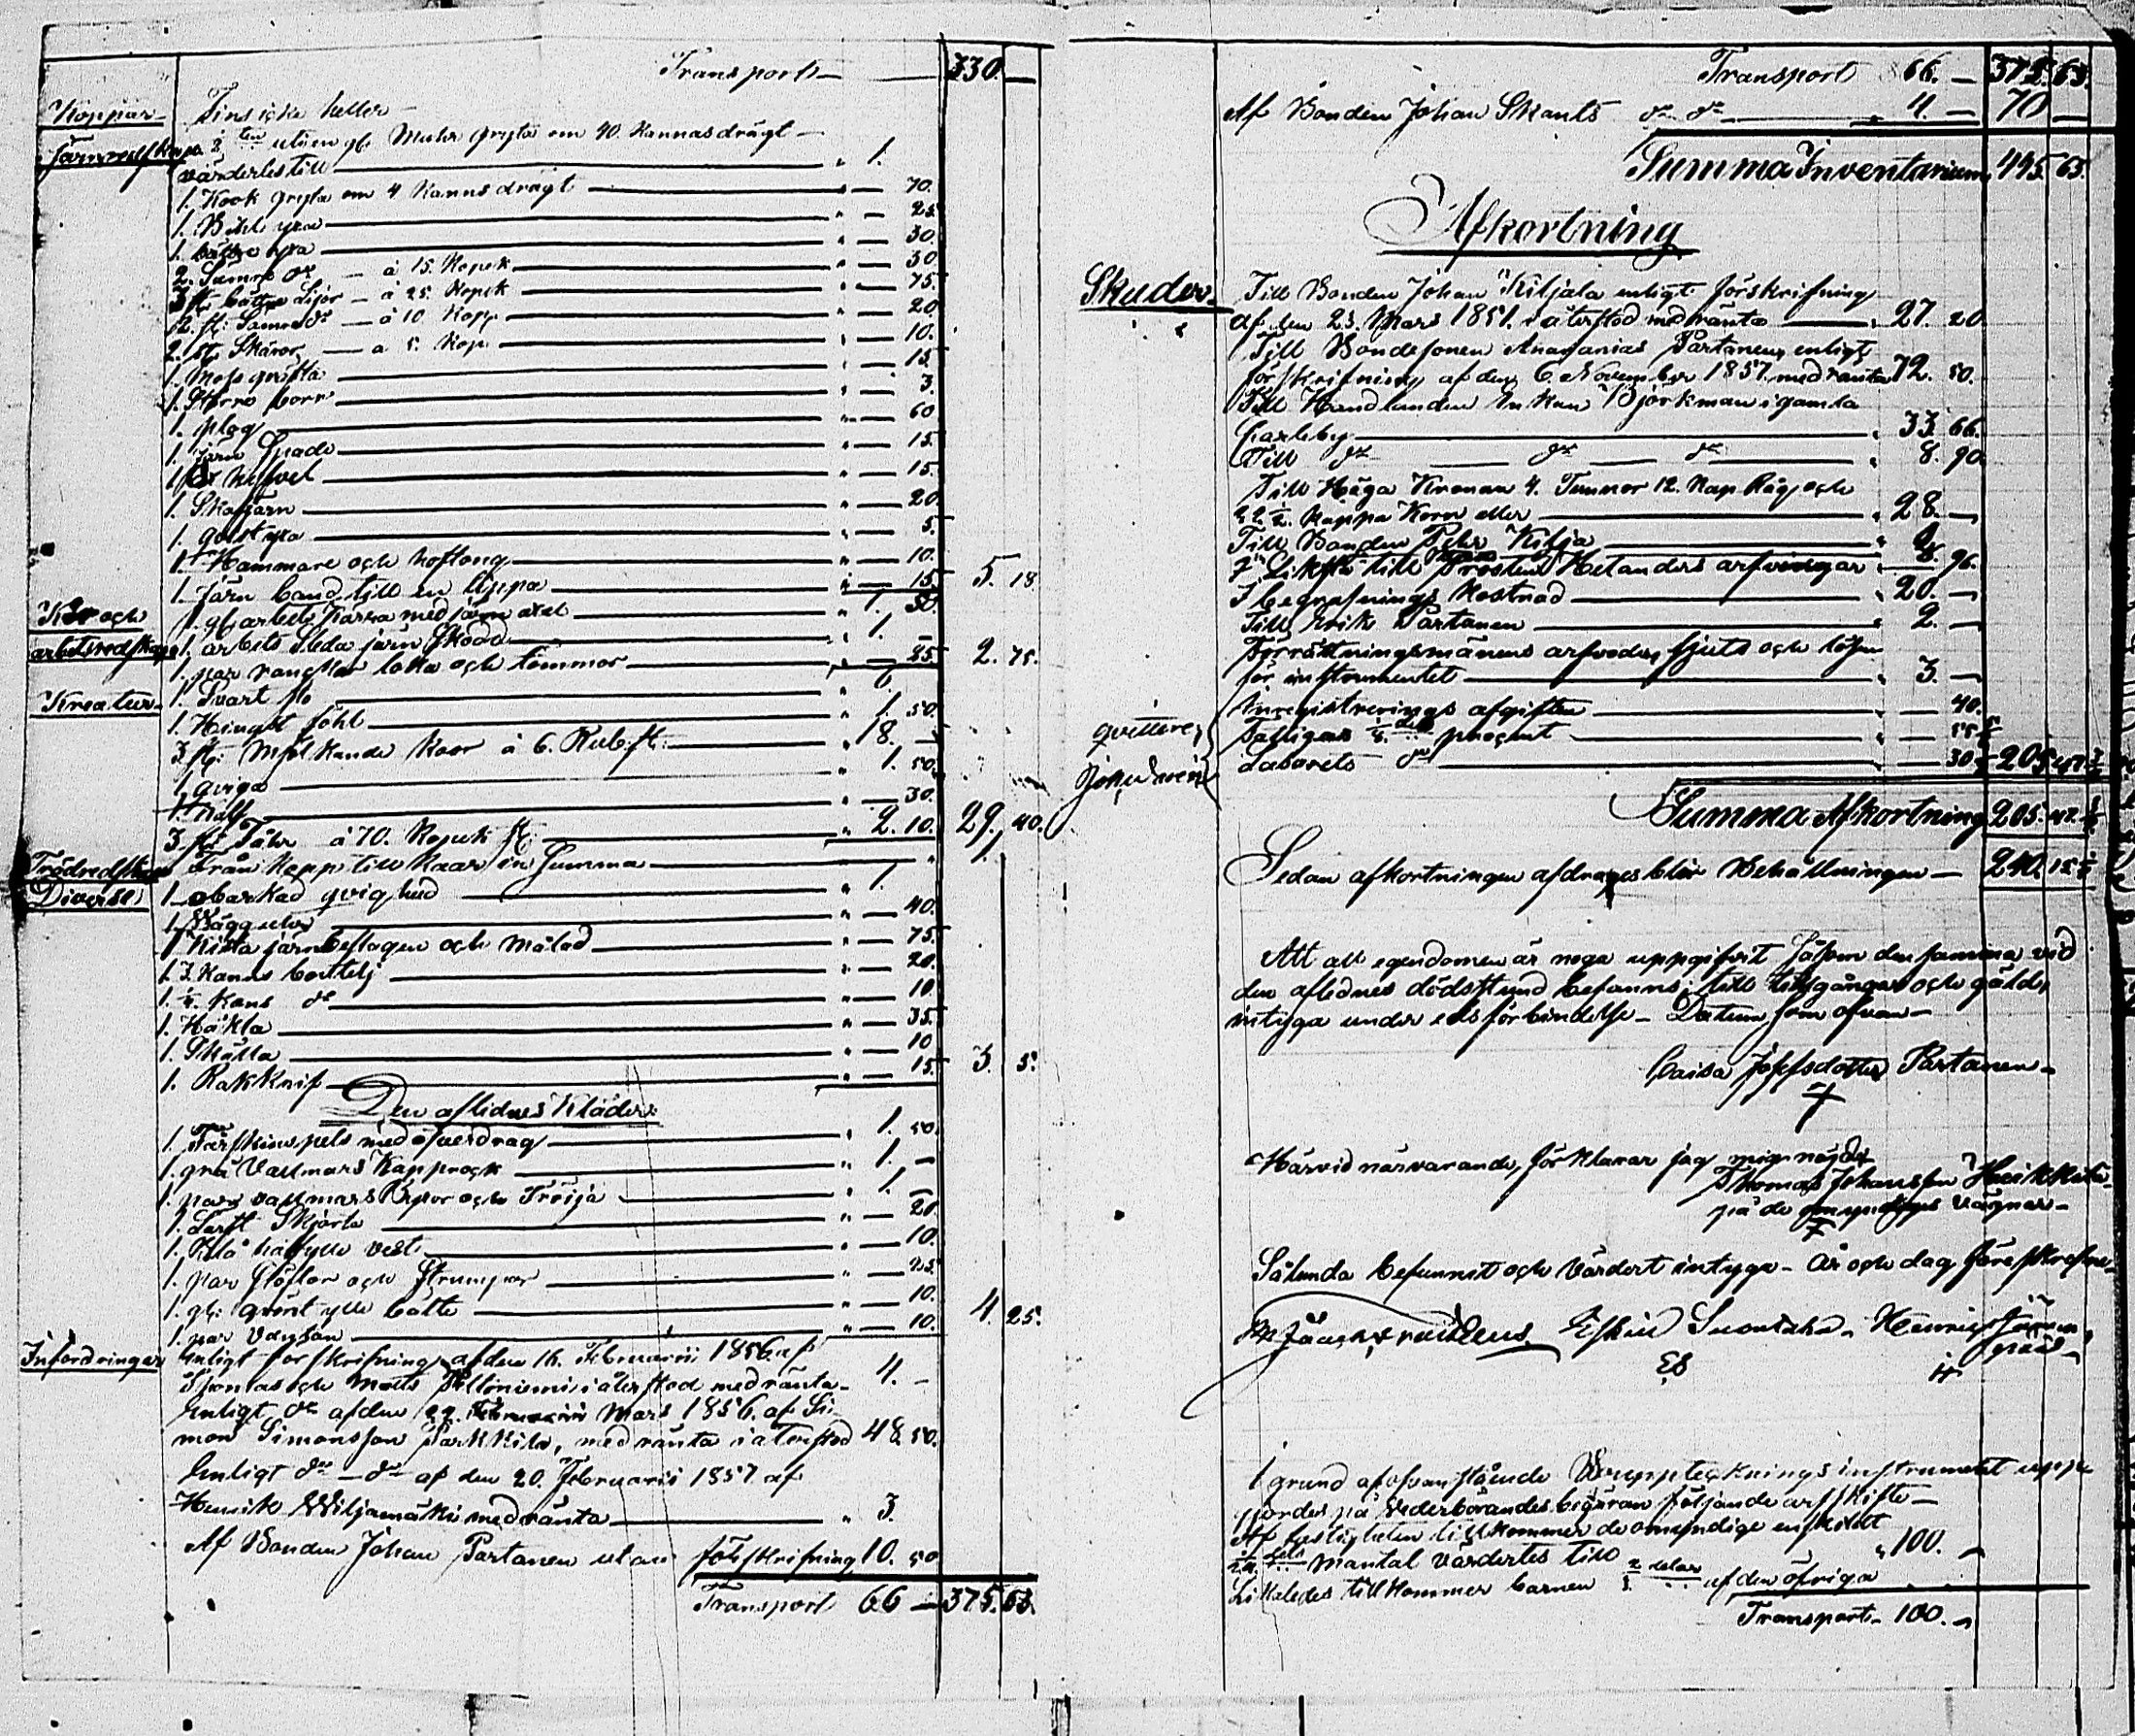 Transport — 330. —
Koppar
Fins icke heller
Järnredskap
värderles till — " 1.
1. Kook gryta om 4 Kanns drägt — " — 70.
1. yxa — " — 25.
1. bättre yxa — " — 30
2. Sämre dr — à 15. Kopek — " — 30.
3 st: bättre Lijor — à 25. Kopek — " — 75.
2. st: Samre dr — à 10 Kop. — " — 20.
2. st: Skäror — à 5. Kop. — " — 10.
1. — " — 15.
1. Större borr — " — 3.
1. plog — " — 60
1. järn Spade — " — 15.
1. — " — 15.
1. Skafjärn — " — 20.
1. — " — 5.
1. Hammare och hoftong — " — 10.
1. Järn band till en — " — 15. 5. 18.
Kör och
arbetsredskap
1. gl: arbets Kärra med järn axel — " 1. 50.
1. arbets Släda järn Skodd — " 1. —
1. par rancklor loka och tömmor — " — 25. 2. 75.
Kreatur
1. Svart Sto
1. Hingst föhl — " 1. 50.
3. st: Mjölkande koor à 6. Rub. st: — " 18. —
1. qviga — " 1. 50.
1. kalf — " — 30.
3. st: Får à 70. Kopek st: — " 2. 10. 29. 40.
Trädredskap
Från kopp till kaar en Summa — 1.
Diverse
1. obarkad qvig hud — " 1.
1. Väggur — " — 40.
1. Kista järnbeslagen och målad — " — 75.
1. 3. Kanns bouttelj — " — 20.
1. Kans dr — " — 10
1. Häkla — " — 35.
1. Skälla — " — 10
1. Rakknif — " — 15. 3. 5.
Den aflidnes Kläder
1. Fårskins pels med öfverdrag — " 1. 50
1. grå Vallmars Kapprock — " 1. —
1. par vallmars Byxor och Tröija — " 1. —
1. Lärft Skjorta — " — 20.
1. Blå halfylle vest — " — 10.
1. par Stöflor och Strumpor — " — 25.
1. gl: ylle bälte — " — 10.
1. par Vantar — " — 10. 4. 25.
Infordringar
Enligt förskrifning af den 16. Februarii 1856 af
Thomas och Matts i återstod med ränta — 4. —
Enligt dr af den 22. Mars 1856. af Si-
mon Simonsson Parkkila, med ränta i återstod 48. 50.
Enligt dr — dr af den 20. Februarii 1857 af
Henrik Wiljamäki med ränta — " 3.
Af Bonden Johan Partanen utan förskrifning 10. 50
Transport 66 — 375. 63.
Transport 66. — 375. 63.
Af Bonden Johan Skants dr dr — 4. — 70 —
Summa Inventarium 445. 63.
Afkortning
Skulder
Till Bonden Johan Kiljala enligt förskrifning
af den 23. Mars 1851. i återstod med ränta — " 27. 20
Till Bondesonen Ananias Partanen enligt
förskrifning af den 6. November 1857. med ränta 72. 50.
Till Handlanden Björkman i gamla
Carleby — " 33. 66.
Till dr — dr — dr — " 8. 90.
Till Höga Kronan 4. Tunnor 12. Kap. Råg och
22 ½. Kappa Korn eller — " 28. —
Till Bonden Pehr Kilja — "
till Prosten Helanders arfvingar " 8. 96.
I begrafnings Kostnad — " 20. —
Till Erik Partanen — " 2. —
Förrättningsmännens arfvode, skjuts och lösen
för instrumentet — " 3. —
qvitteres
Inregistrerings afgiften — " — 40.
Fattigas procent — " — 55
Joh: Varén
Lazarets dr — " — 30 205. 47
Summa Afkortning 205. 47
Sedan afkortningen afdrages blir Behållningen — 240. 15
Att all egendomen är noga uppgifvit Såsom den samma vid
den aflednes dödsstund befanns; till tillgångar och gäld,
intyga under eds förbindelse — Datum som ofvan —
Caisa Josefsdotter Partanen —
Härvid närvarande, förklarar jag mig nöjd
Thomas Johansson
på de omyndiges vägnar —
Sålunda befunnit och Värdert intyga — År och dag föreskrefne —
Eskil Henric
I grund af ofvanstående Bouppteckningsinstrument upp-
gjordes på Vederbörandes begäran följande arfskifte —
Af fastigheten tillkommer de omyndige enskildt
Mantal värdertes till — " 100. —
Likaledes tillkommer barnen af den öfriga
Transport 100. —